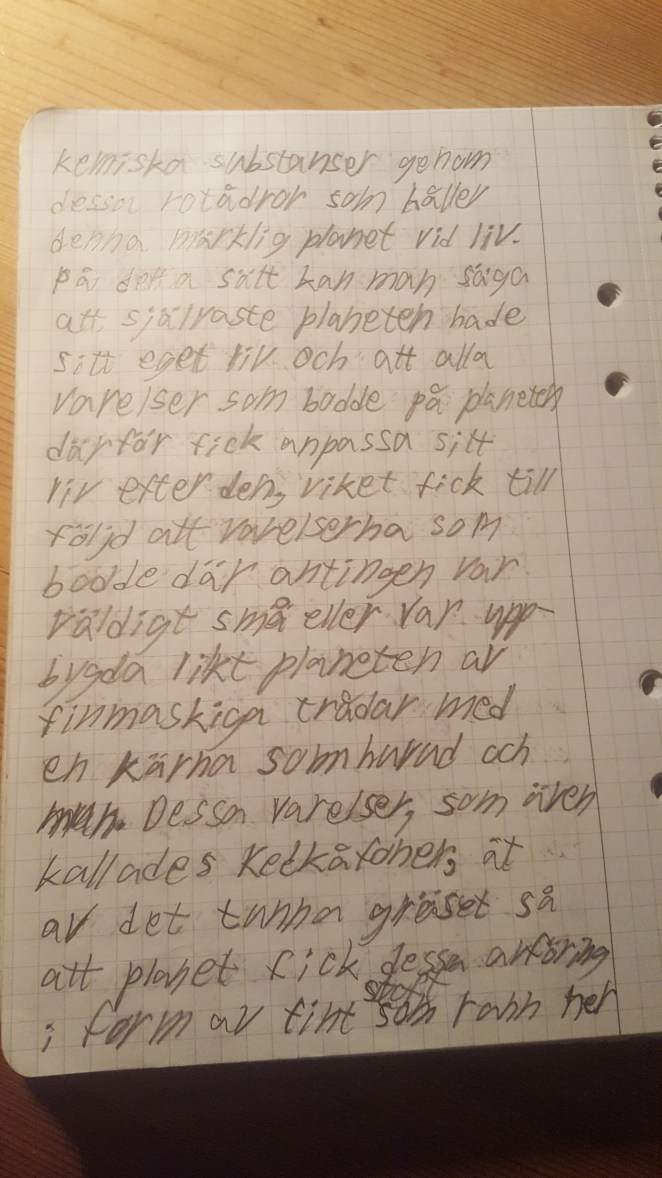 kemiska substanser genom
dessa rotådror som håller
denna märklig planet vid liv.
På detta sätt kan man säga
att självaste planeten hade
sitt eget liv och att alla
varelser som bodde på planeten
därför fick anpassa sitt
liv efter den, vilket fick till
följd att varelserna som
bodde där antingen var
väldigt små eller var upp-
bygda likt planeten av
finmaskiga trådar med
en kärna som huvud och
mun. Dessa varelser, som även
kallades Kedkåfoner, åt
av det tunna gräset så
att planet fick dessa avföring
i form av fint stoft som rann ner